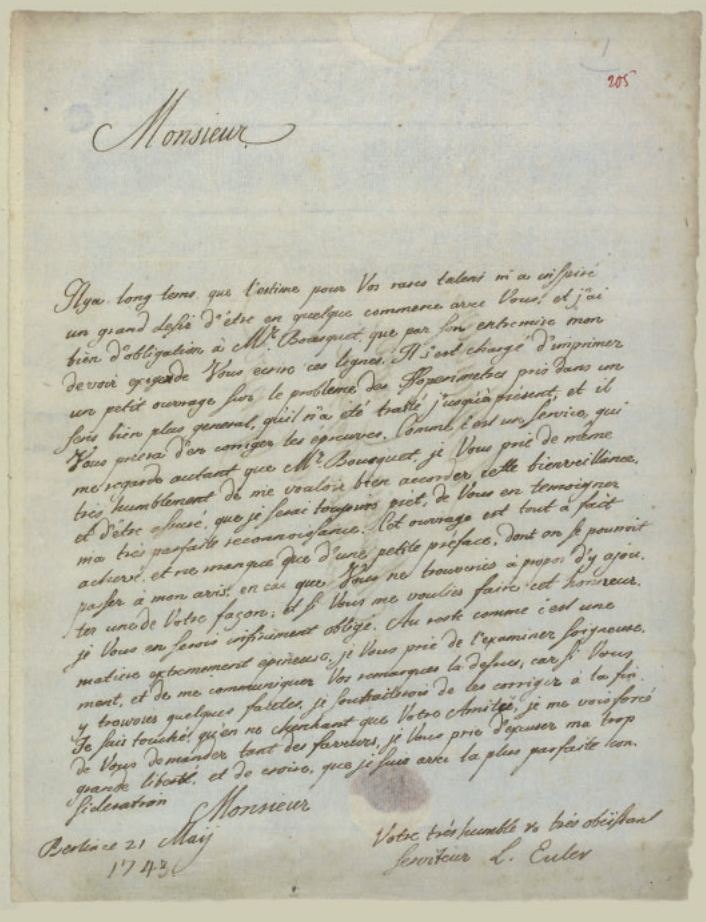 205
Monsieur
Il y a long tems que l'estime pour Vos rares talens m'a inspiré
un grand desir d'être en quelque commerce avec Vous, et j'ai
bien d'obligation à Mr. Bousquet, que par son entremise mon
devoir exige de Vous ecrire ces lignes. Il s'est chargé d'imprimer
un petit ouvrage sur le probleme des Isoperimetres pris dans un
sens bien plus general, qu'il n'a été traité jusqu'à présent, et il
Vous priera d'en corriger les épreuves. Comme c'est un service, qui
me regarde autant que Mr. Bousquet, je Vous prie de même
très humblement de me vouloir bien accorder cette bienveillance,
et d'être assuré, que je serai toujours prêt, de Vous en temoigner
ma très parfaite reconnoissance. Cet ouvrage est tout à fait
achevé, et ne manque que d'une petite préface, dont on se pourroit
passer à mon avis, en cas que Vous ne trouveriés à propos d'y ajou-
ter une de Votre façon; et si Vous me vouliés faire cet honneur,
je Vous en serois infiniment obligé. Au reste comme c'est une
matiere extremement epineuse, je Vous prie de l'examiner soigneuse-
ment, et de me communiquer Vos remarques la dessus, car si Vous
y trouvés quelques fautes, je souhaiterois de les corriger à la fin.
Je suis touché, qu'en ne cherchant que Votre Amitié, je me vois forcé
de Vous demander tant des faveurs, je Vous prie d'épauser ma trop
grande liberté, et de croire, que je suis avec la plus parfaite con-
sideration
Monsieur
Berlin ce 21 Maij
1743
Votre très humble & très obeïssant
serviteur L. Euler